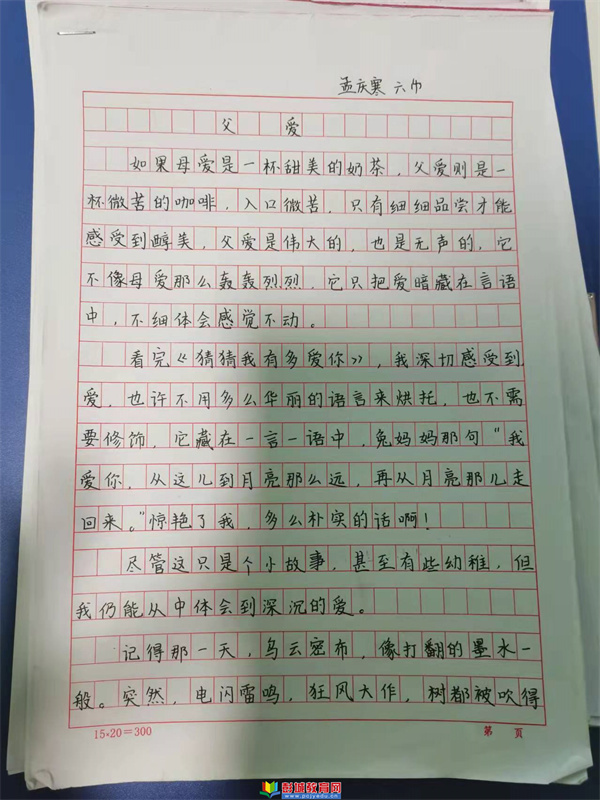 孟庆寒 六(1)
父 爱
如果母爱是一杯甜美的奶茶，父爱则是一
杯微苦的咖啡，入口微苦，只有细细品尝才能
感受到醇美，父爱是伟大的，也是无声的，它
不像母爱那么轰轰烈烈，它只把爱暗藏在言语
中，不细体会感觉不动。
看完《猜猜我有多爱你》，我深切感受到
爱，也许不用多么华丽的语言来烘托，也不需
要修饰，它藏在一言一语中，兔妈妈那句“我
爱你，从这儿到月亮那么远，再从月亮那儿走
回来。”惊艳了我，多么朴实的话啊！
尽管这只是个小故事，甚至有些幼稚，但
我仍能从中体会到深沉的爱。
记得那一天，乌云密布，像打翻的墨水一
般。突然，电闪雷鸣，狂风大作，树都被吹得
15×20=300
第 页
彭城教育网
www.pcjyedu.cn